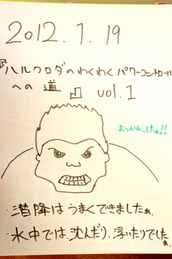 2012.1.19
『ハルクロダのわくわくパワーコントロール
への道』 vol.1
おつかれ、したぁ!!
・潜降はうまくできましたぁ。
・水中では、沈んだり、浮いたりでしたぁ。